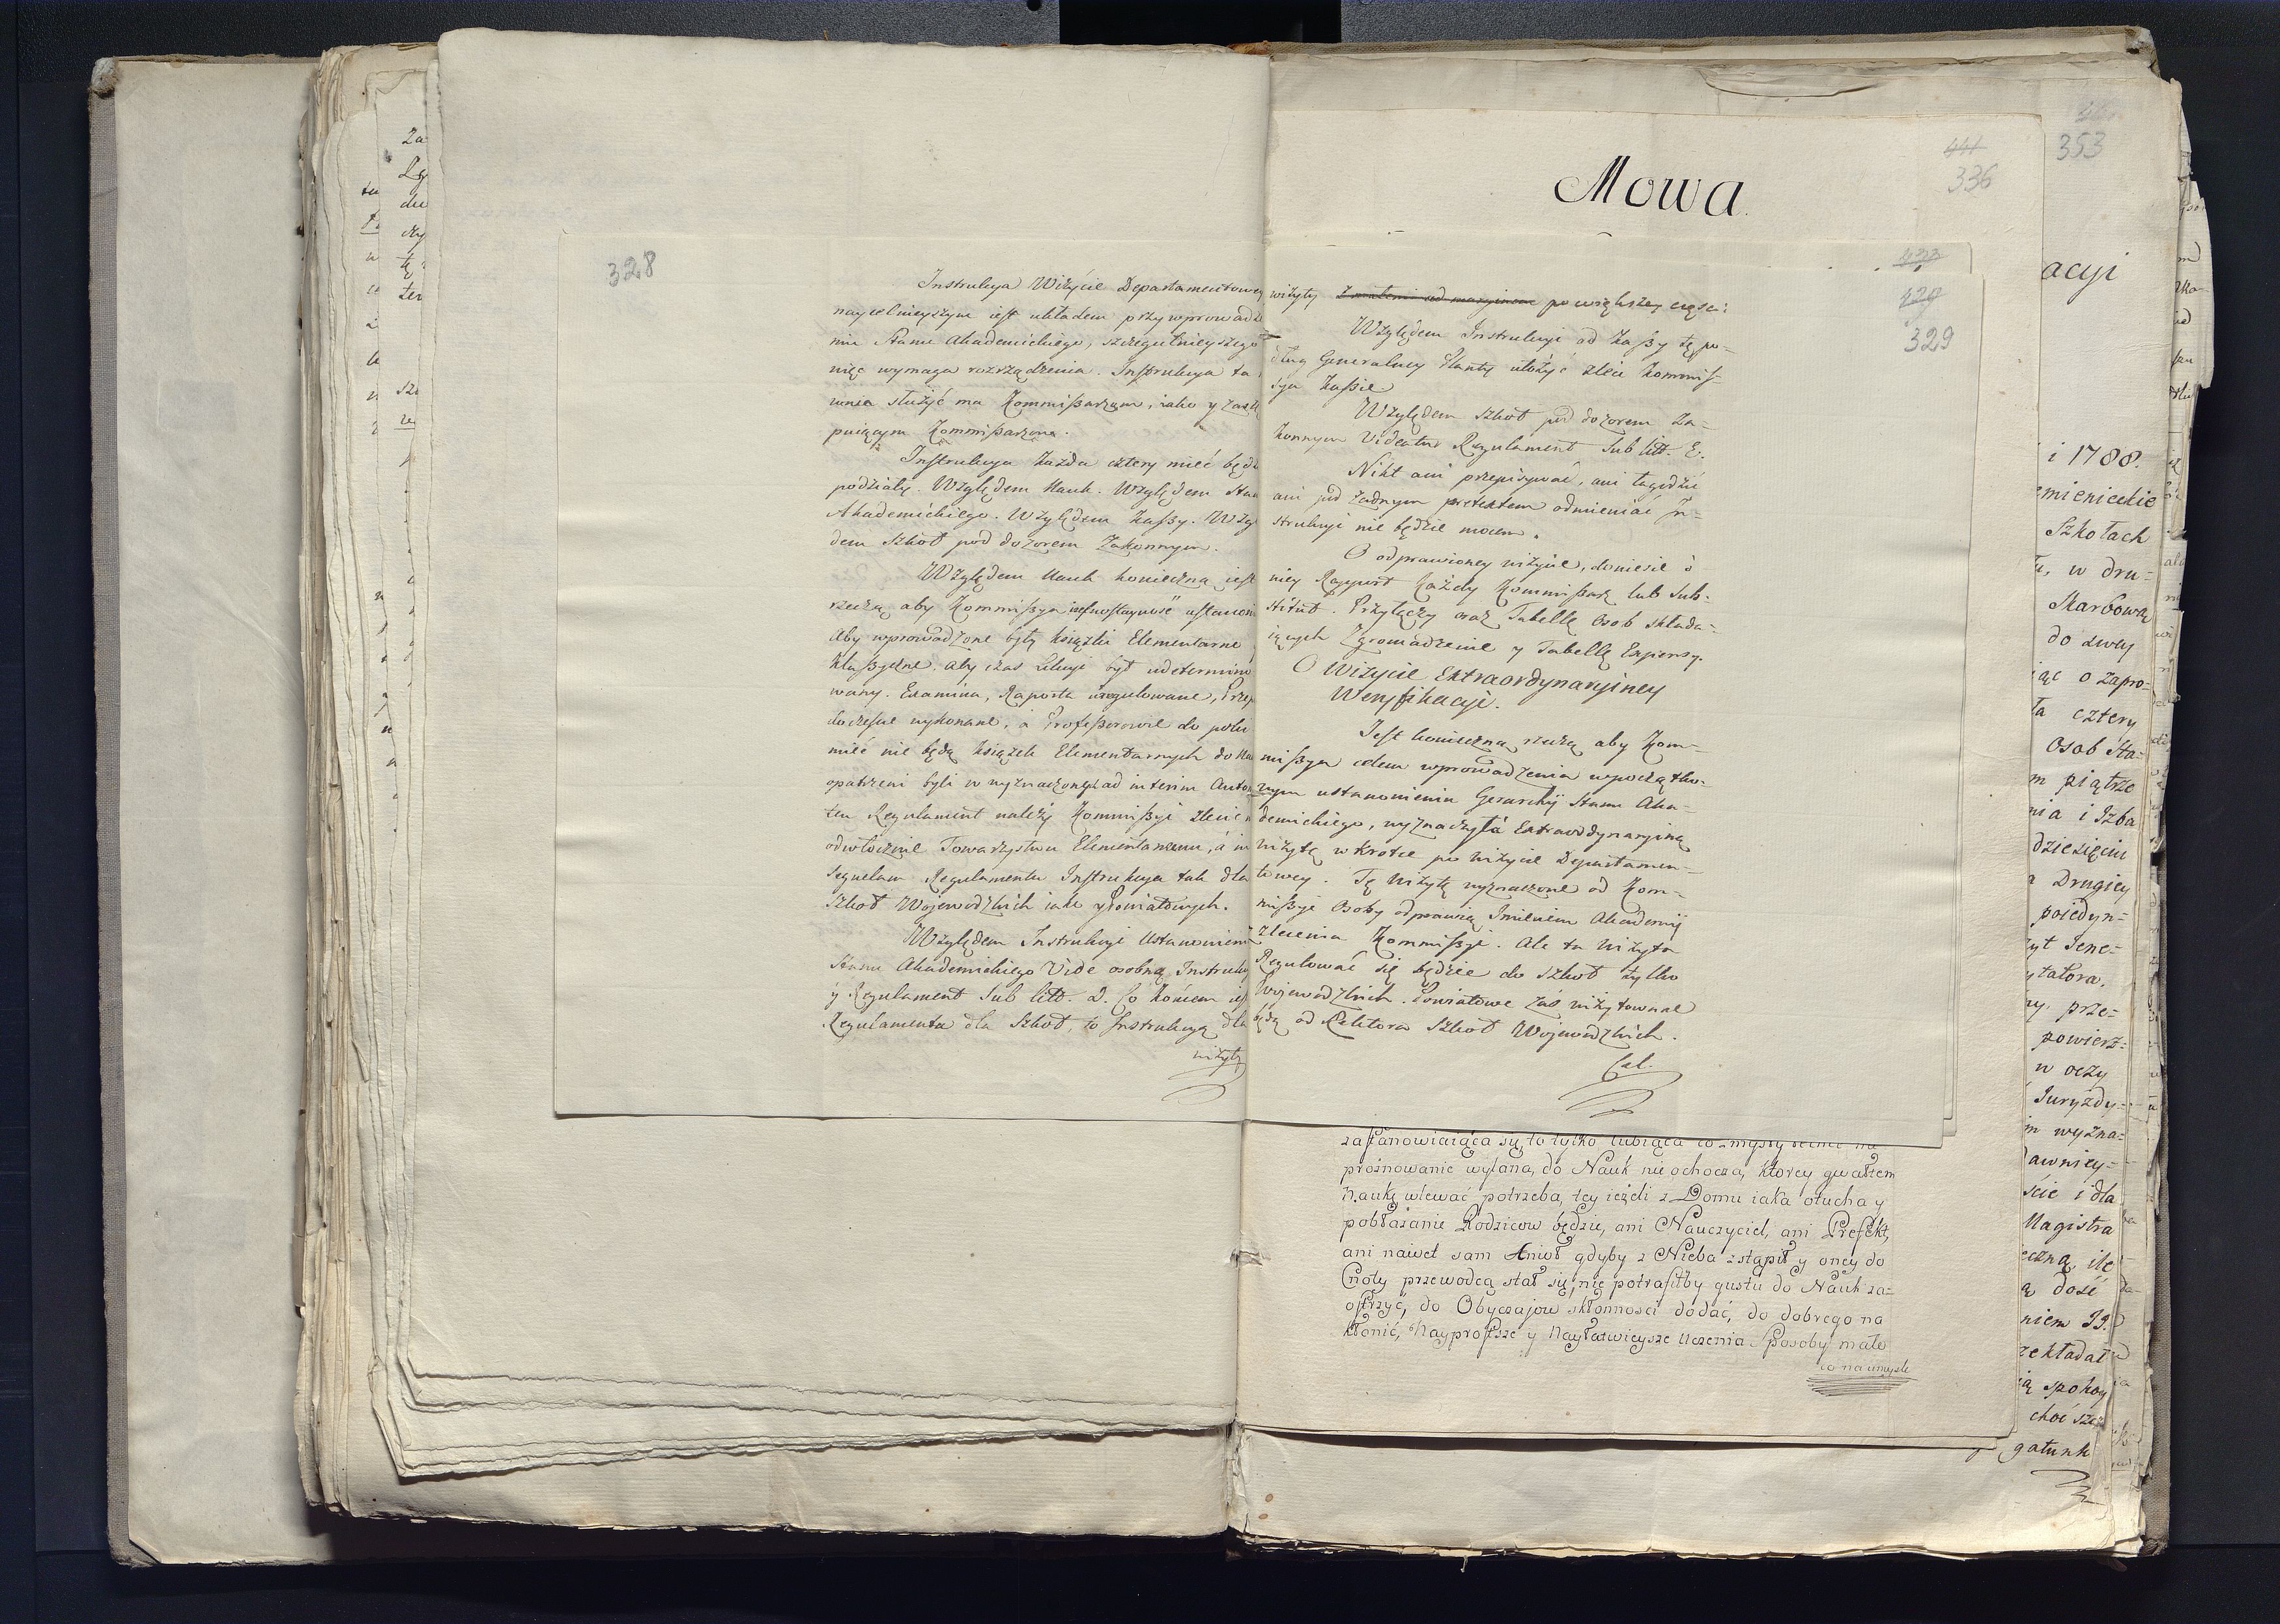 328
Instrukcya Wizycie Departamentowey
naycelnieyszym iest układem przy wprowadze
niu Stanu Akademickiego, szczegulnieyszego
więc wymaga rozrządzenia. Instrukcya ta
rownie służyć ma Kommissarzom, iako y zastę
puiącym Kommissarzow.
Instrukcya każda cztery mieć będz
podziały. Względem Nauk. Względem Stanu
Akademickiego. Względem Kassy. Wzglę
dem Szkoł pod dozorem Zakonnym.
Względem Nauk konieczną iest
rzeczą aby Kommissya iednostayność ustanowi
Aby wprowadzone były książki Elementarne
Klassyczne. aby czas Lekcyi był udetermino
wany. Examina, Raporta uregulowane, Prze
doczesne wykonane, a Professorowie do poki
mieć nie będą książek Elementarnych do Nau
opatrzeni byli w wyznaczonych ad interim Autor
ten Regulament należy Kommissyi zlecić n
odwłocznie Towarzystwu Elementarnemu, á in
sequelam Regulamentu Instrukcya tak dla
Szkoł Wojewodzkich iako y Powiatowych.
Względem Instrukcyi Ustanowieni
Stanu Akademickiego Vide osobną Instrukcy
y Regulament Sub litt. D. Co końcem ies
Regulamentu dla Szkoł, to Instrukcyą dla
wizyty
Mowa.
441
336
353
433
429
329
wizyty po większey części:
Względem Instrukcyi od Kassy tę po-
dług Generalney Planty ułożyć zleci Kommis-
sya Kassie
Względem szkoł pod dozorem Za-
konnym Videatur Regulament Sub litt. E.
Nikt ani przepisywać, ani łagodzić
ani pod żadnym pretextem odmieniać In-
strukcyi nie będzie mocen.
O odprawioney wizycie, doniesie ó
niey Rapport każdy Kommissarz lub Sub-
stitut. Przyłączy oraz Tabellę Osob składa-
iących Zgromadzenie y Tabellę Expensy.
O Wizycie Extraordynaryiney
Weryfikacyi.
Jest konieczną rzeczą aby Kom-
missya celem wprowadzenia w początko-
wym ustanowieniu Gerarchij Stanu Aka-
demickiego, wyznaczyła Extraordynaryiną
wizytę wkrotce po wizycie Departamen-
towey. Tę wizytę wyznaczone od Kom-
missyi Osoby odprawią Imieniem Akademij
zlecenia Kommissyi. Ale ta wizyta
Regulować się będzie do szkoł tylko
Wojewodzkich. Powiatowe zaś wizytowane
będą od Rektora Szkoł Wojewodzkich.
Cal.
zastanowiaiąca się, to tylko lubiąca co zmysły
prożnowanie wylana, do Nauk nie ochocza, ktorey gwałtem
Naukę wlewać potrzeba, tey ieżeli z Domu iaka otucha y
pobłażanie Rodzicow będzie, ani Nauczyciel, ani Prefekt,
ani nawet sam Anioł gdyby z Nieba zstąpił y oney do
Cnoty przewodcą stał się, nie potrafiłby gustu do Nauk za=
ostrzyć, do Obyczajow skłonności dodać, do dobrego na
kłonić, Nayprostsze y Nayłatwieysze Uczenia Sposoby mało
co na umyśle
acyi
i 1788.
emienieckie
Szkołach
u, w dru=
Skarbową
do zwey
iąc o zapro=
ła cztery
Osob Sta=
m piątrze
nia i Izba
dziesięciu
a Drugiey
poiedyn=
zyt Jene=
ytatora.
ry prze=
powierz=
w oczy
Juryzdy=
m wyzna=
dawniey=
scie i dla
Magistra
eczną, ile
ą dość
niem IJ.
zekładał
ią spokoy
choć szcz
gatunk